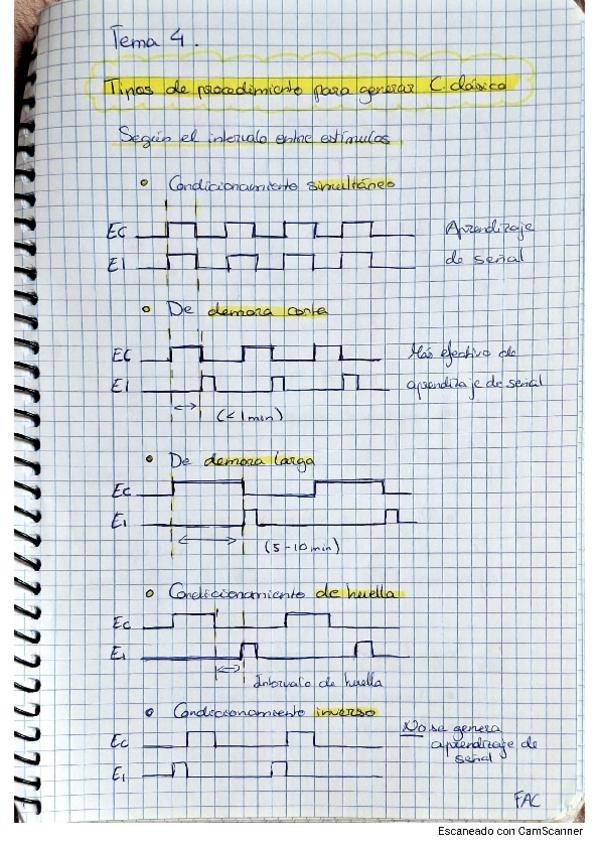 Tema 4.
Tipos de procedimiento para generar C. clásico
Según el intervalo entre estímulos
• Condicionamiento simultáneo
EC
Aprendizaje
EI
de señal
• De demora corta
EC
Más efectivo de
EI
aprendizaje de señal
(< 1 min)
• De demora larga
EC
EI
(5-10 min)
• Condicionamiento de huella
EC
EI
Intervalo de huella
• Condicionamiento inverso
No se genera
EC
aprendizaje de
señal
EI
FAC
Escaneado con CamScanner